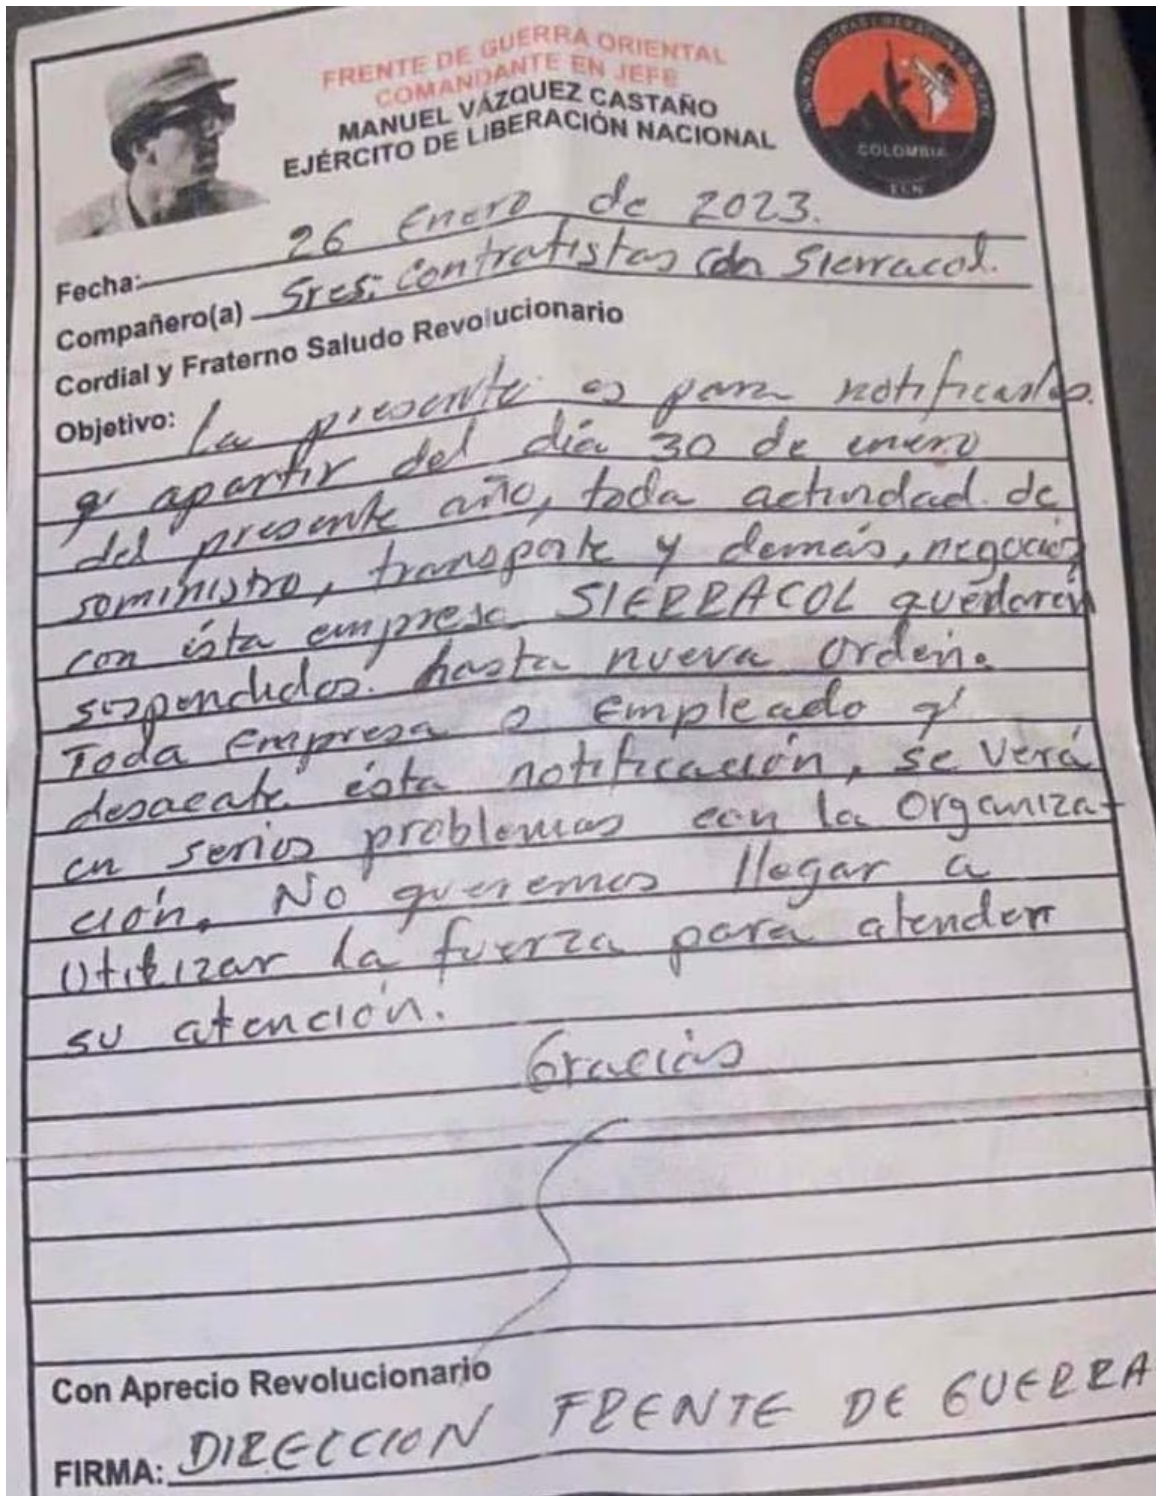 FRENTE DE GUERRA ORIENTAL
COMANDANTE EN JEFE
MANUEL VÁZQUEZ CASTAÑO
EJÉRCITO DE LIBERACIÓN NACIONAL
COLOMBIA
ELN
Fecha: 26 Enero de 2023.
Compañero(a) Sres: Contratistas con Sierracol.
Cordial y Fraterno Saludo Revolucionario
Objetivo: La presente es para notificarles.
q' apartir del día 30 de enero
del presente año, toda actividad de
suministro, transporte y demás, negocios
con ésta empresa SIERRACOL quedarán
suspendidos. hasta nueva orden.
Toda Empresa o Empleado q'
desacate ésta notificación, se verá
en serios problemas con la Organiza-
ción. No queremos llegar a
Utilizar la fuerza para atender
su atención.
Gracias
Con Aprecio Revolucionario
FIRMA: DIRECCION FRENTE DE GUERRA